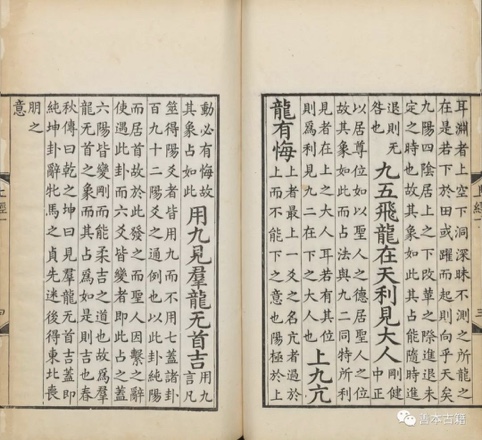 耳淵者上空下洞深昧不測之所龍之
在是若下於田或躍而起則向乎天矣
九陽四陰居上之下改革之際進退未
定之時也故其象如此其占能隨時進
退則无
咎也
九五飛龍在天利見大人
剛健
中正
以居尊位如以聖人之德居聖人之位
故其象如此而占法與九二同特所利
見者在上之大人耳若有其位
則爲利見九二在下之大人也
上九亢
龍有悔
上者最上一爻之名亢者過於
上而不能下之意也陽極於上
動必有悔故
其象占如此
用九見羣龍无首吉
用九
言凡
筮得陽爻者皆用九而不用七蓋諸卦
百九十二陽爻之通例也以此卦純陽
而居首故於此發之而聖人因繫之辭
使遇此卦而六爻皆變者即此占之蓋
六陽皆變剛而能柔吉之道也故爲羣
龍无首之象而其占爲如是則吉也春
秋傳曰乾之坤曰見羣龍无首吉蓋即
純坤卦辭牝馬之貞先迷後得東北喪
朋之
意
善本古籍